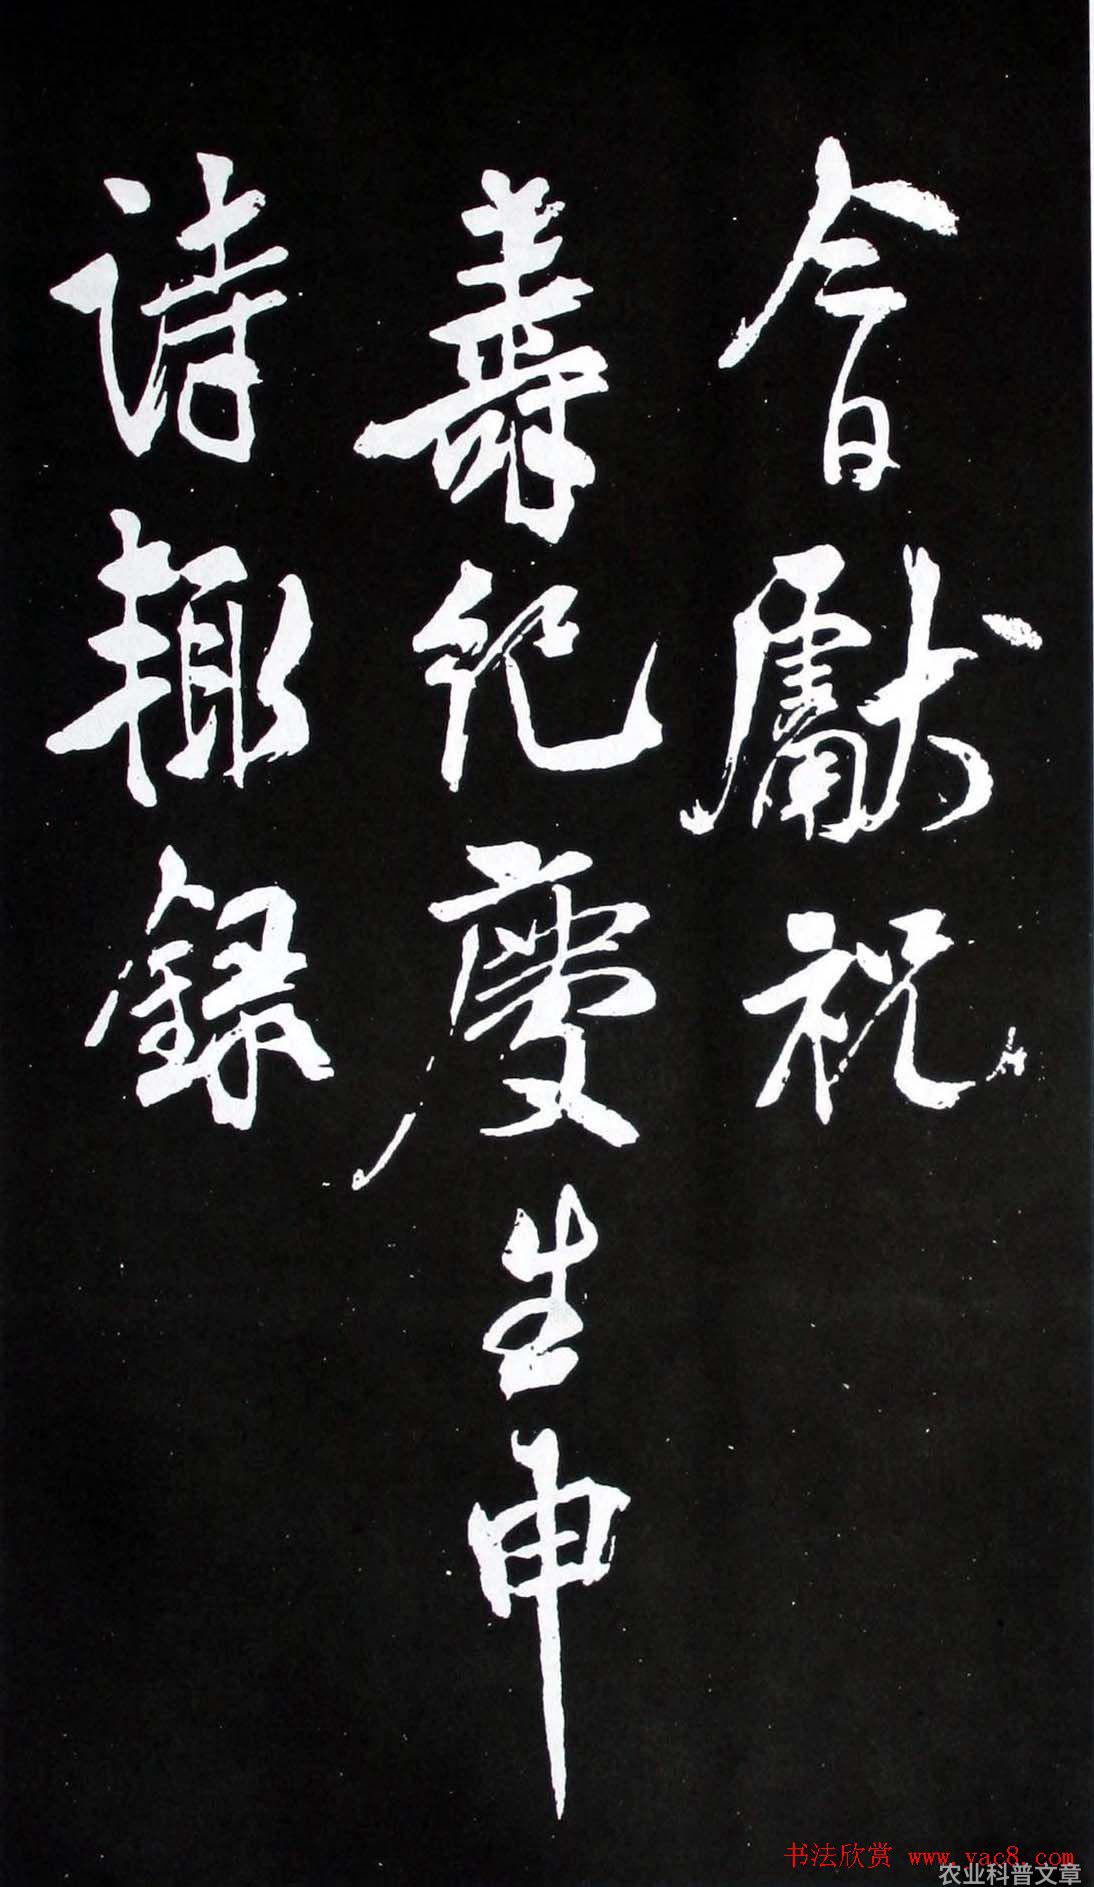 今日獻祝
壽紀慶生申
詩輙録
书法欣赏 www.yac8.com
农业科普文章